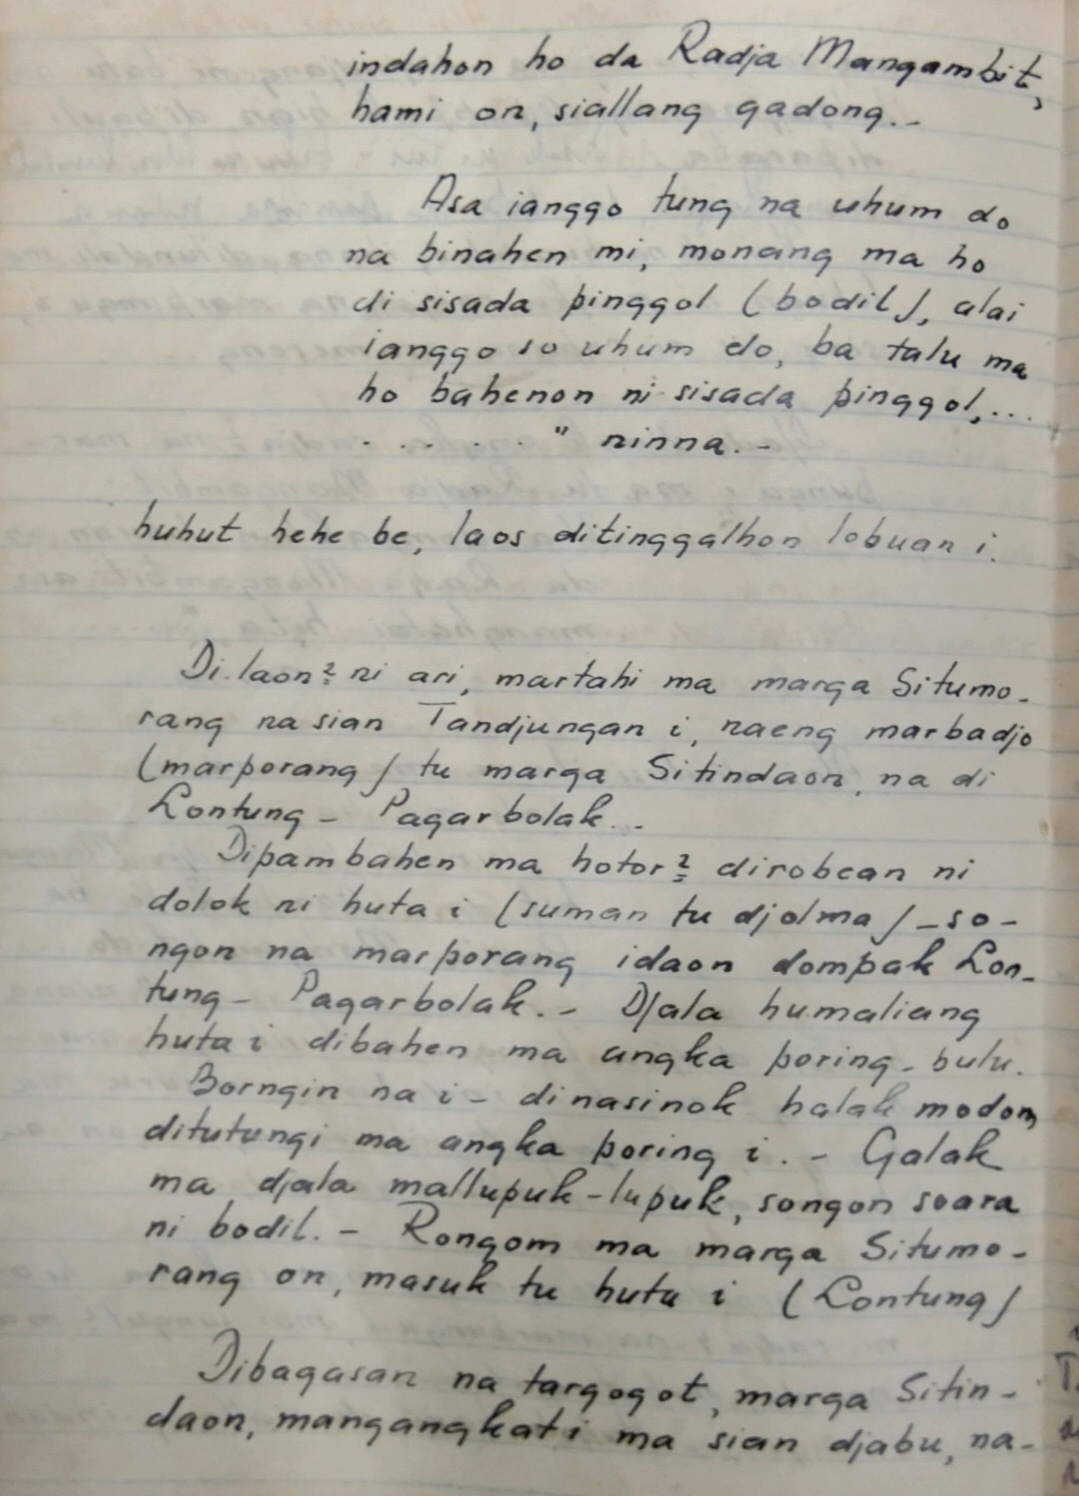 indahon ho da Radja Mangambit,
hami on, siallang gadong.-
Asa ianggo tung na uhum do
na binahen mi, monang ma ho
di sisada pinggol (bodil), alai
ianggo so uhum do, ba talu ma
ho bahenon ni sisada pinggol,...
. . . . . . " ninna.-
huhut hehe be, laos ditinggalhon lobuan i.
Di laon² ni ari, martahi ma marga Situmo-
rang na sian Tandjungan i, naeng marbadjo
(marporang) tu marga Sitindaon, na di
Lontung - Pagarbolak.-
Dipambahen ma hotor² dirobean ni
dolok ni huta i (suman tu djolma) - so-
ngon na marporang idaon dompak Lon-
tung - Pagarbolak.- Djala humaliang
huta i dibahen ma angka poring-bulu.
Borngin na i - dinasinok halak modom
ditutungi ma angka poring i.- Galak
ma djala mallupuk-lupuk, songon soara
ni bodil.- Rongom ma marga Situmo-
rang on, masuk tu huta i (Lontung)
Dibagasan na targogot, marga Sitin-
daon, mangangkati ma sian djabu, na-